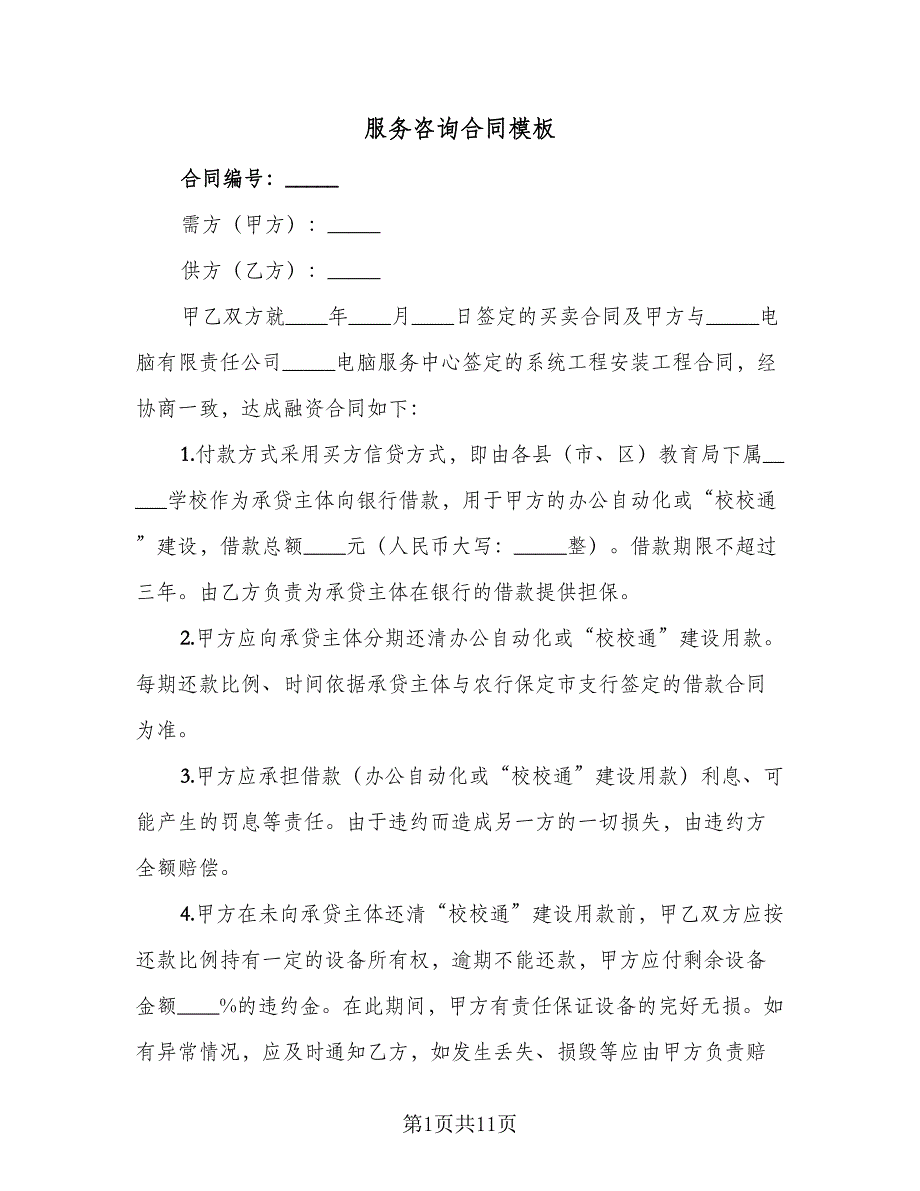 服务咨询合同模板
合同编号：_____
需方（甲方）：_____
供方（乙方）：_____
甲乙双方就____年____月____日签定的买卖合同及甲方与_____电
脑有限责任公司_____电脑服务中心签定的系统工程安装工程合同，经
协商一致，达成融资合同如下：
1.付款方式采用买方信贷方式，即由各县（市、区）教育局下属__
___学校作为承贷主体向银行借款，用于甲方的办公自动化或“校校通
”建设，借款总额____元（人民币大写：_____整）。借款期限不超过
三年。由乙方负责为承贷主体在银行的借款提供担保。
2.甲方应向承贷主体分期还清办公自动化或“校校通”建设用款。
每期还款比例、时间依据承贷主体与农行保定市支行签定的借款合同
为准。
3.甲方应承担借款（办公自动化或“校校通”建设用款）利息、可
能产生的罚息等责任。由于违约而造成另一方的一切损失，由违约方
全额赔偿。
4.甲方在未向承贷主体还清“校校通”建设用款前，甲乙双方应按
还款比例持有一定的设备所有权，逾期不能还款，甲方应付剩余设备
金额____%的违约金。在此期间，甲方有责任保证设备的完好无损。如
有异常情况，应及时通知乙方，如发生丢失、损毁等应由甲方负责赔
第1页共11页